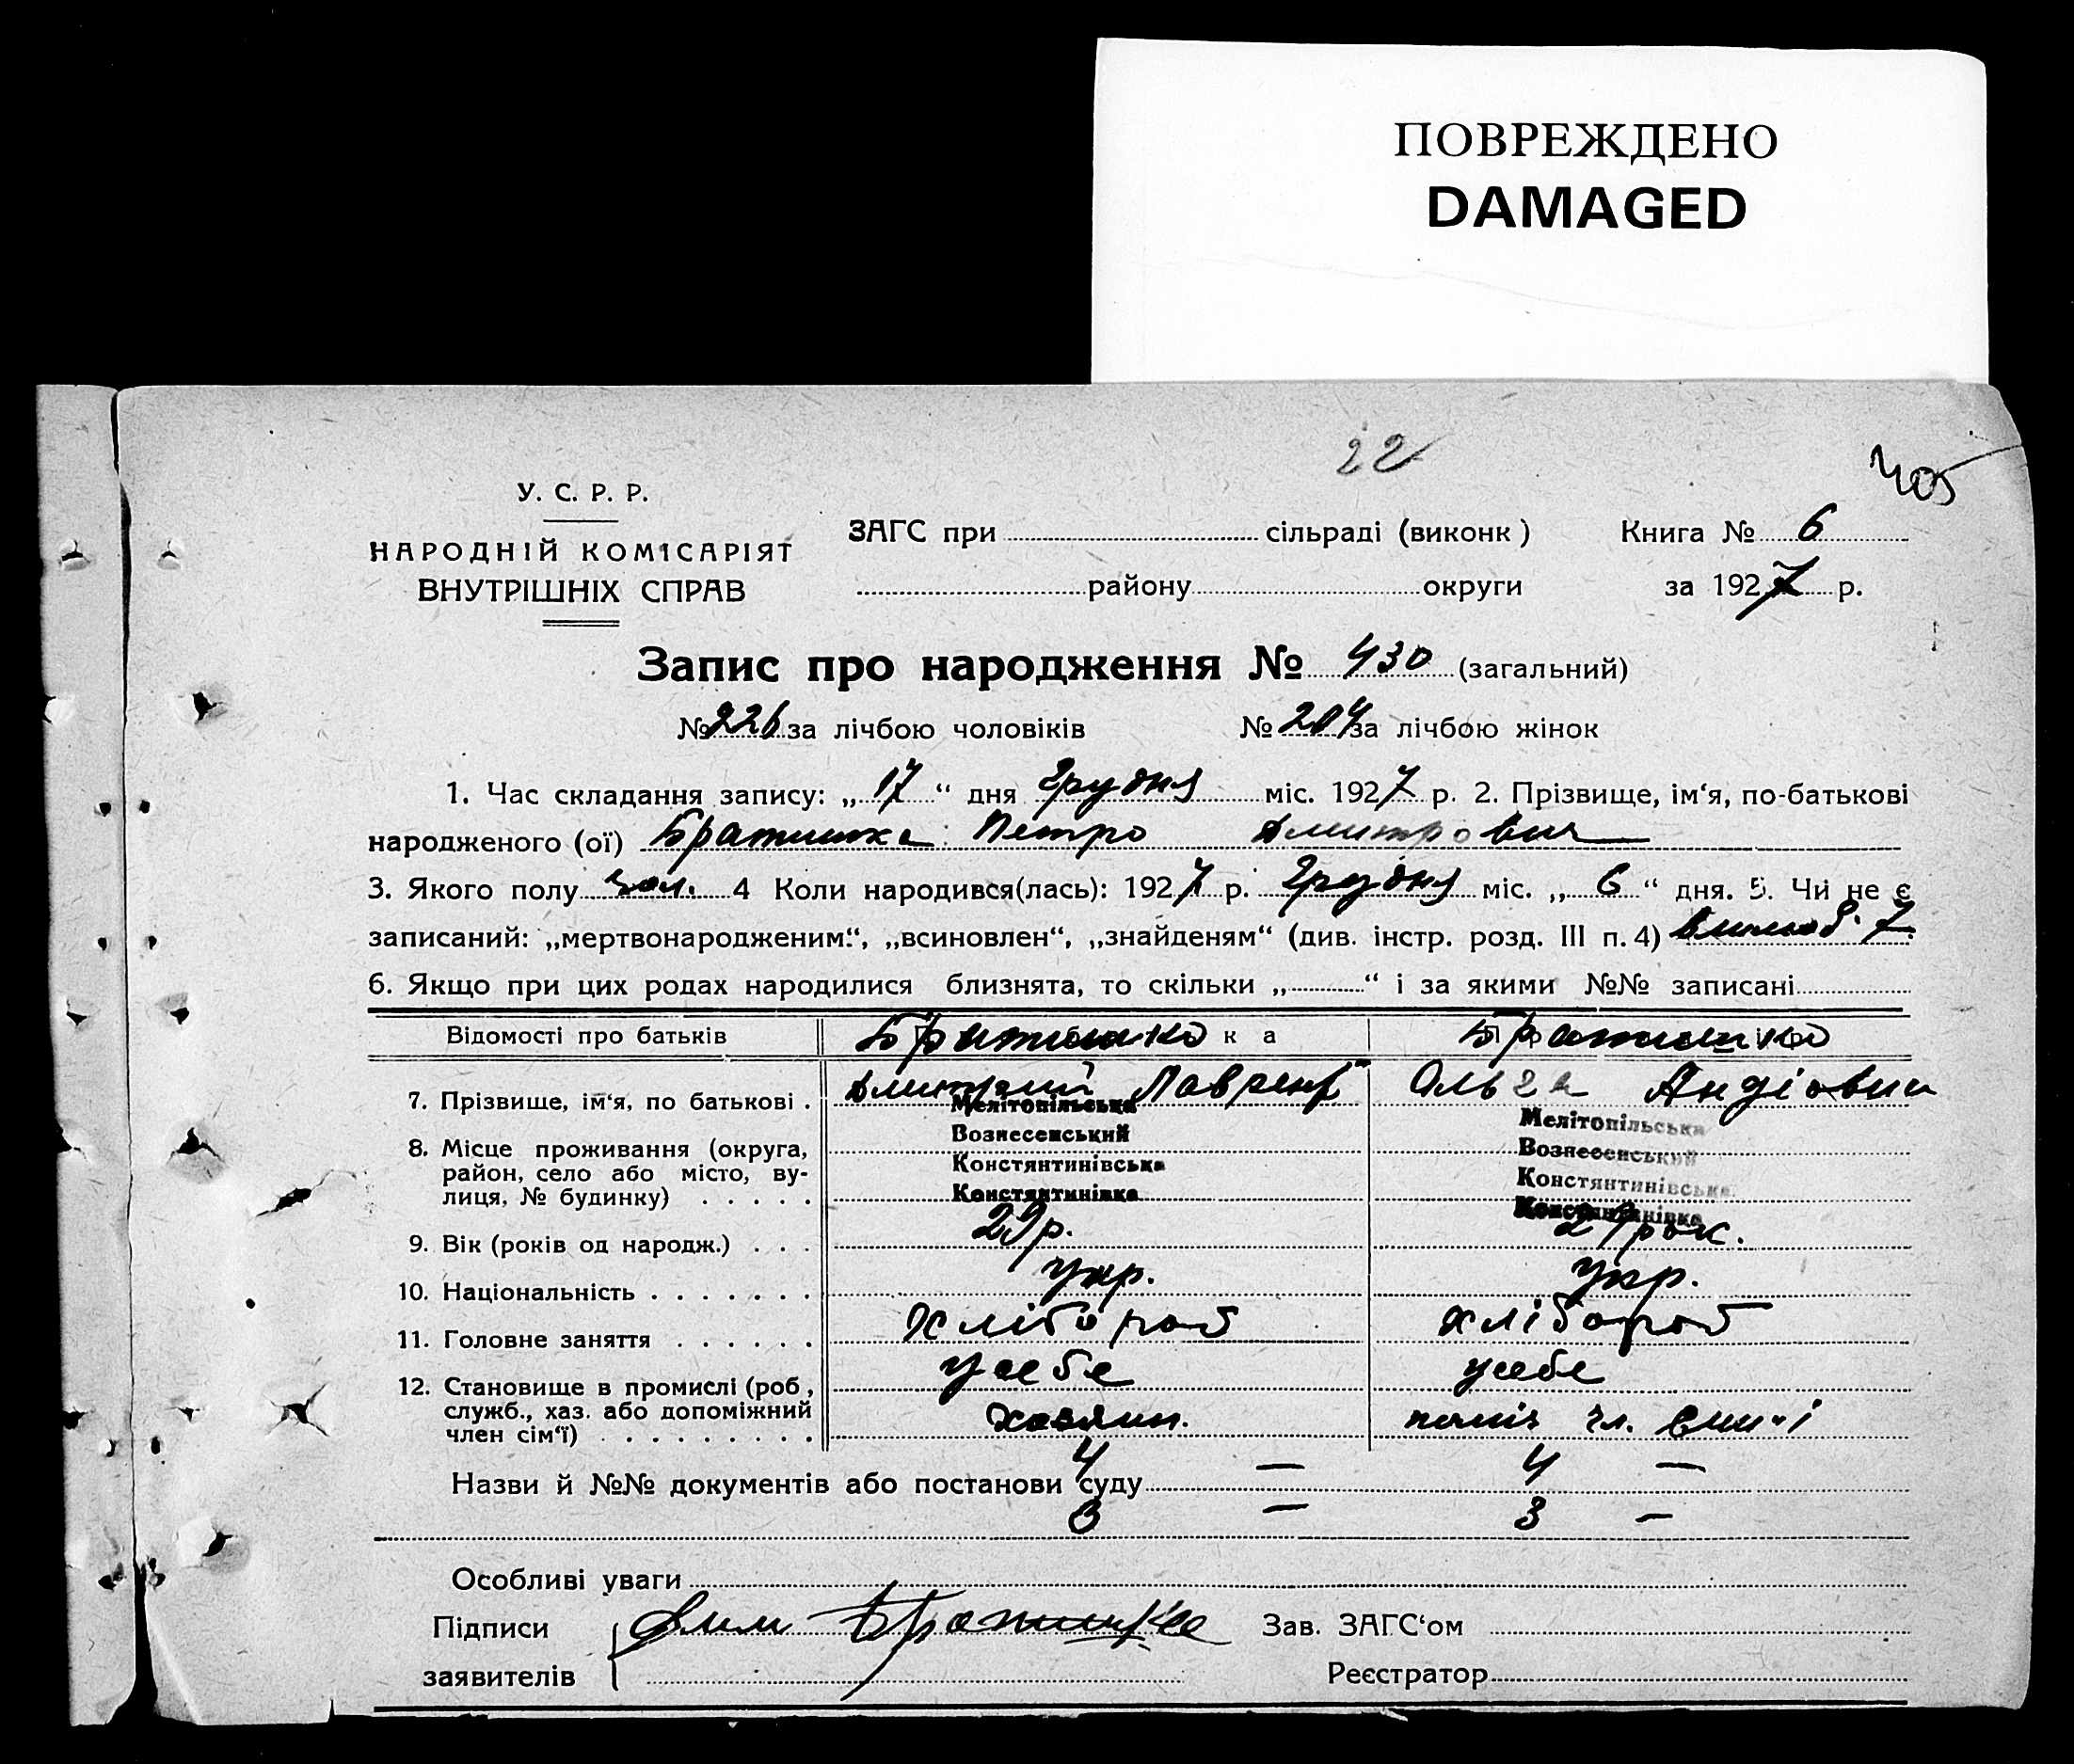 ПОВРЕЖДЕНО
DAMAGED
22
405
У. С. Р. Р.
НАРОДНІЙ КОМІСАРІЯТ
ВНУТРІШНІХ СПРАВ
ЗАГС при сільраді (виконк)
району округи
Книга № 6
за 1927 р.
Запис про народження № 430 (загальний)
№ 226 за лічбою чоловіків № 204 за лічбою жінок
1. Час складання запису: „17“ дня Грудня міс. 1927 р. 2. Прізвище, ім‘я, по-батькові
народженого (ої) Братишка Петро Дмитрович
3. Якого полу чол. 4 Коли народився(лась): 1927 р. Грудня міс. „6“ дня. 5. Чи не є
записаний: „мертвонародженим“, „всиновлен“, „знайденям“ (див. інстр. розд. III п. 4)
6. Якщо при цих родах народилися близнята, то скільки „ “ і за якими №№ записані
Відомості про батьків Братишко Братишко
7. Прізвище, ім‘я, по батькові . Дмитрий Лаврент Ольга Андіовна
8. Місце проживання (округа,
район, село або місто, ву-
лиця, № будинку) . . . . .
Мелітопільська
Вознесенський
Костянтинівська
Костянтинівка
Мелітопільська
Вознесенський
Костянтинівська
Костянтинівка
9. Вік (років од народж.) . . . 29 р. 29 рок.
10. Національність . . . . . . . укр. укр.
11. Головне заняття . . . . . . хлібороб хлібороб
12. Становище в промислі (роб,
служб., хаз. або допоміжний
член сім‘ї) . . . . . . . . .
у себе у себе
хозяин. поміч чл.
4 — 4 —
Назви й №№ документів або постанови суду
3 — 3 —
Особливі уваги
Підписи Дми Братишка Зав. ЗАГС‘ом
заявителів Реєстратор